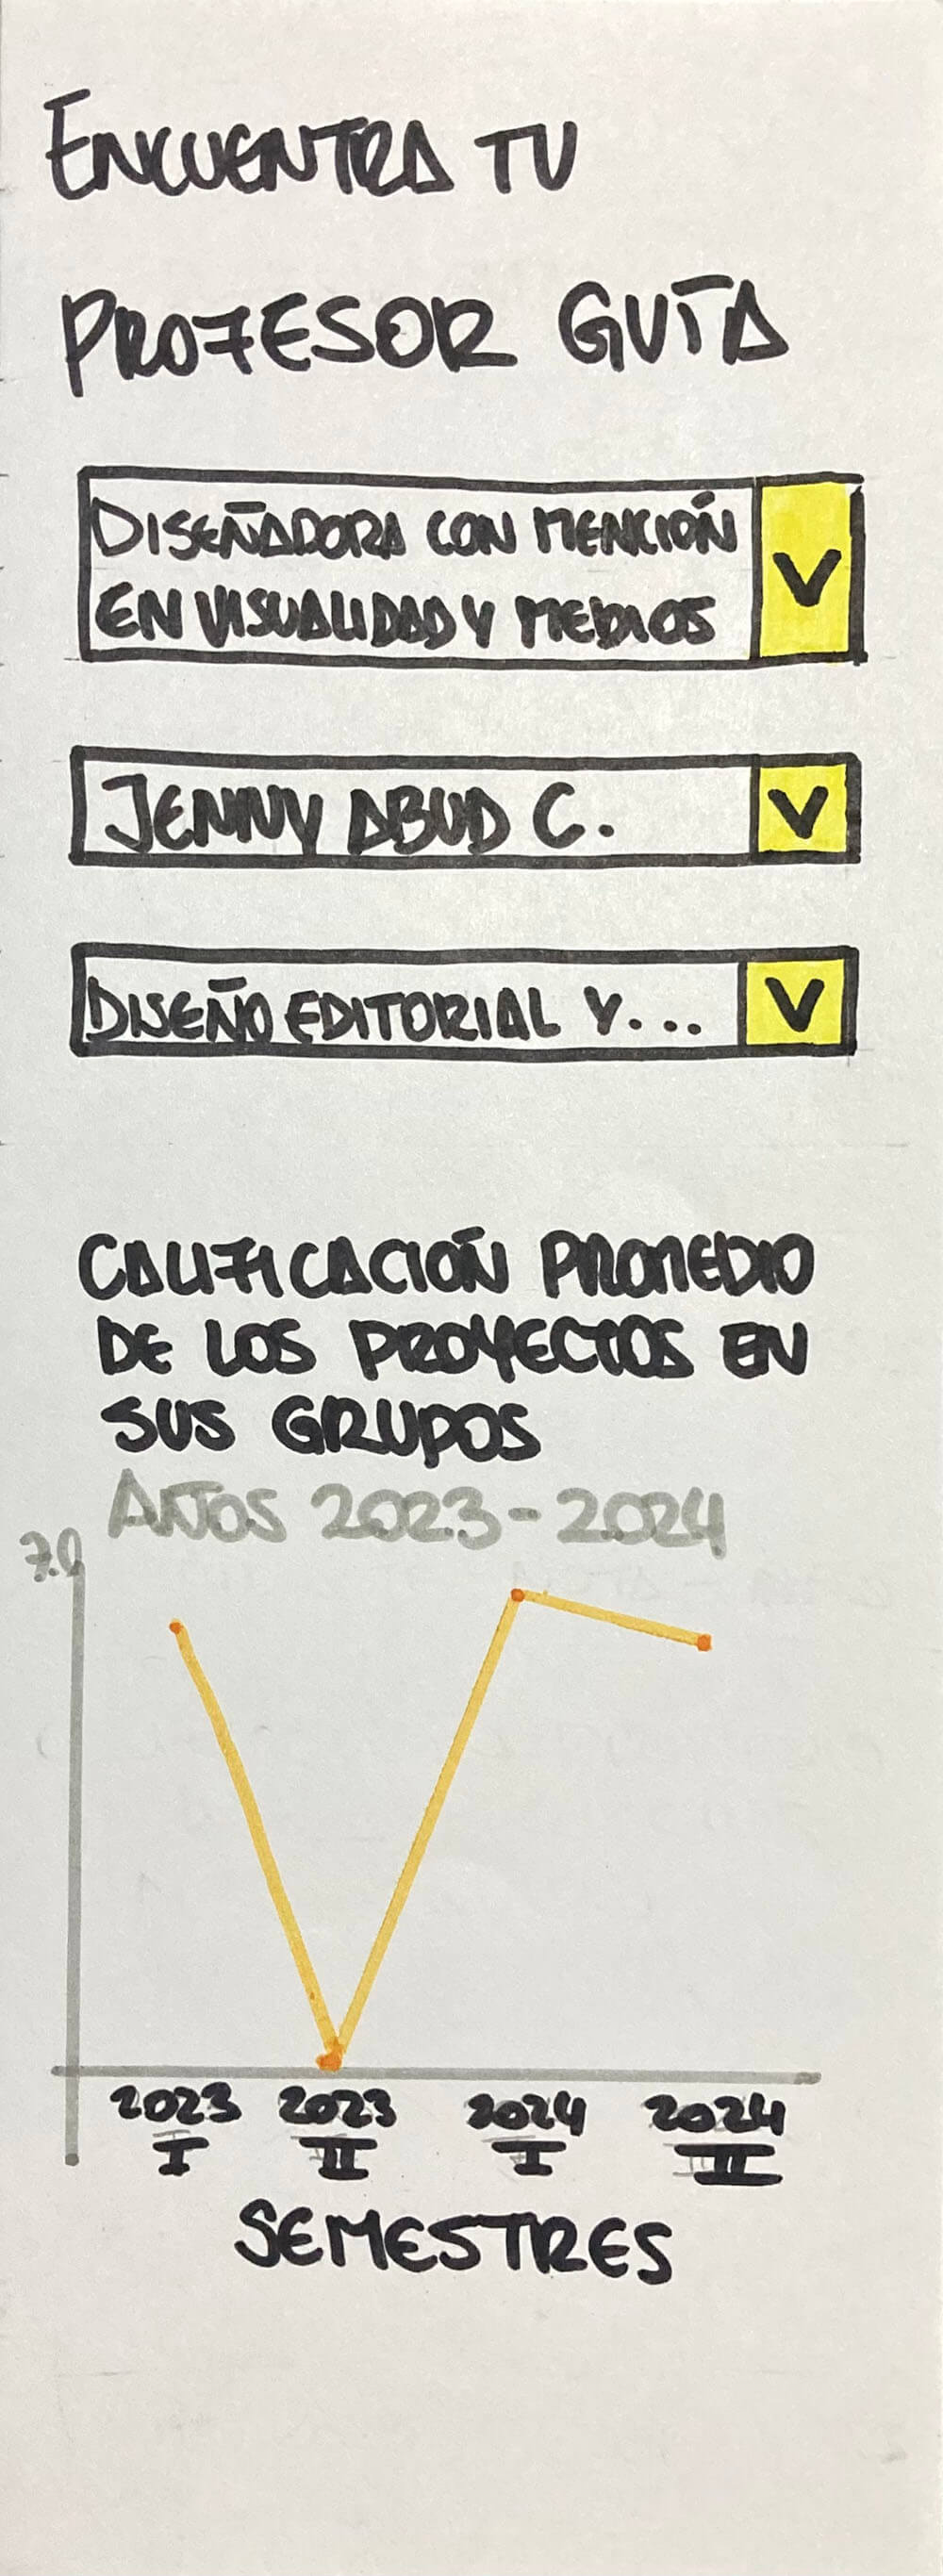 ENCUENTRA TU
PROFESOR GUÍA
DISEÑADORA CON MENCIÓN
EN VISUALIDAD Y MEDIOS
V
JENNY ABUD C.
V
DISEÑO EDITORIAL Y...
V
CALIFICACIÓN PROMEDIO
DE LOS PROYECTOS EN
SUS GRUPOS
AÑOS 2023-2024
7.0
2023 2023 2024 2024
I II I II
SEMESTRES